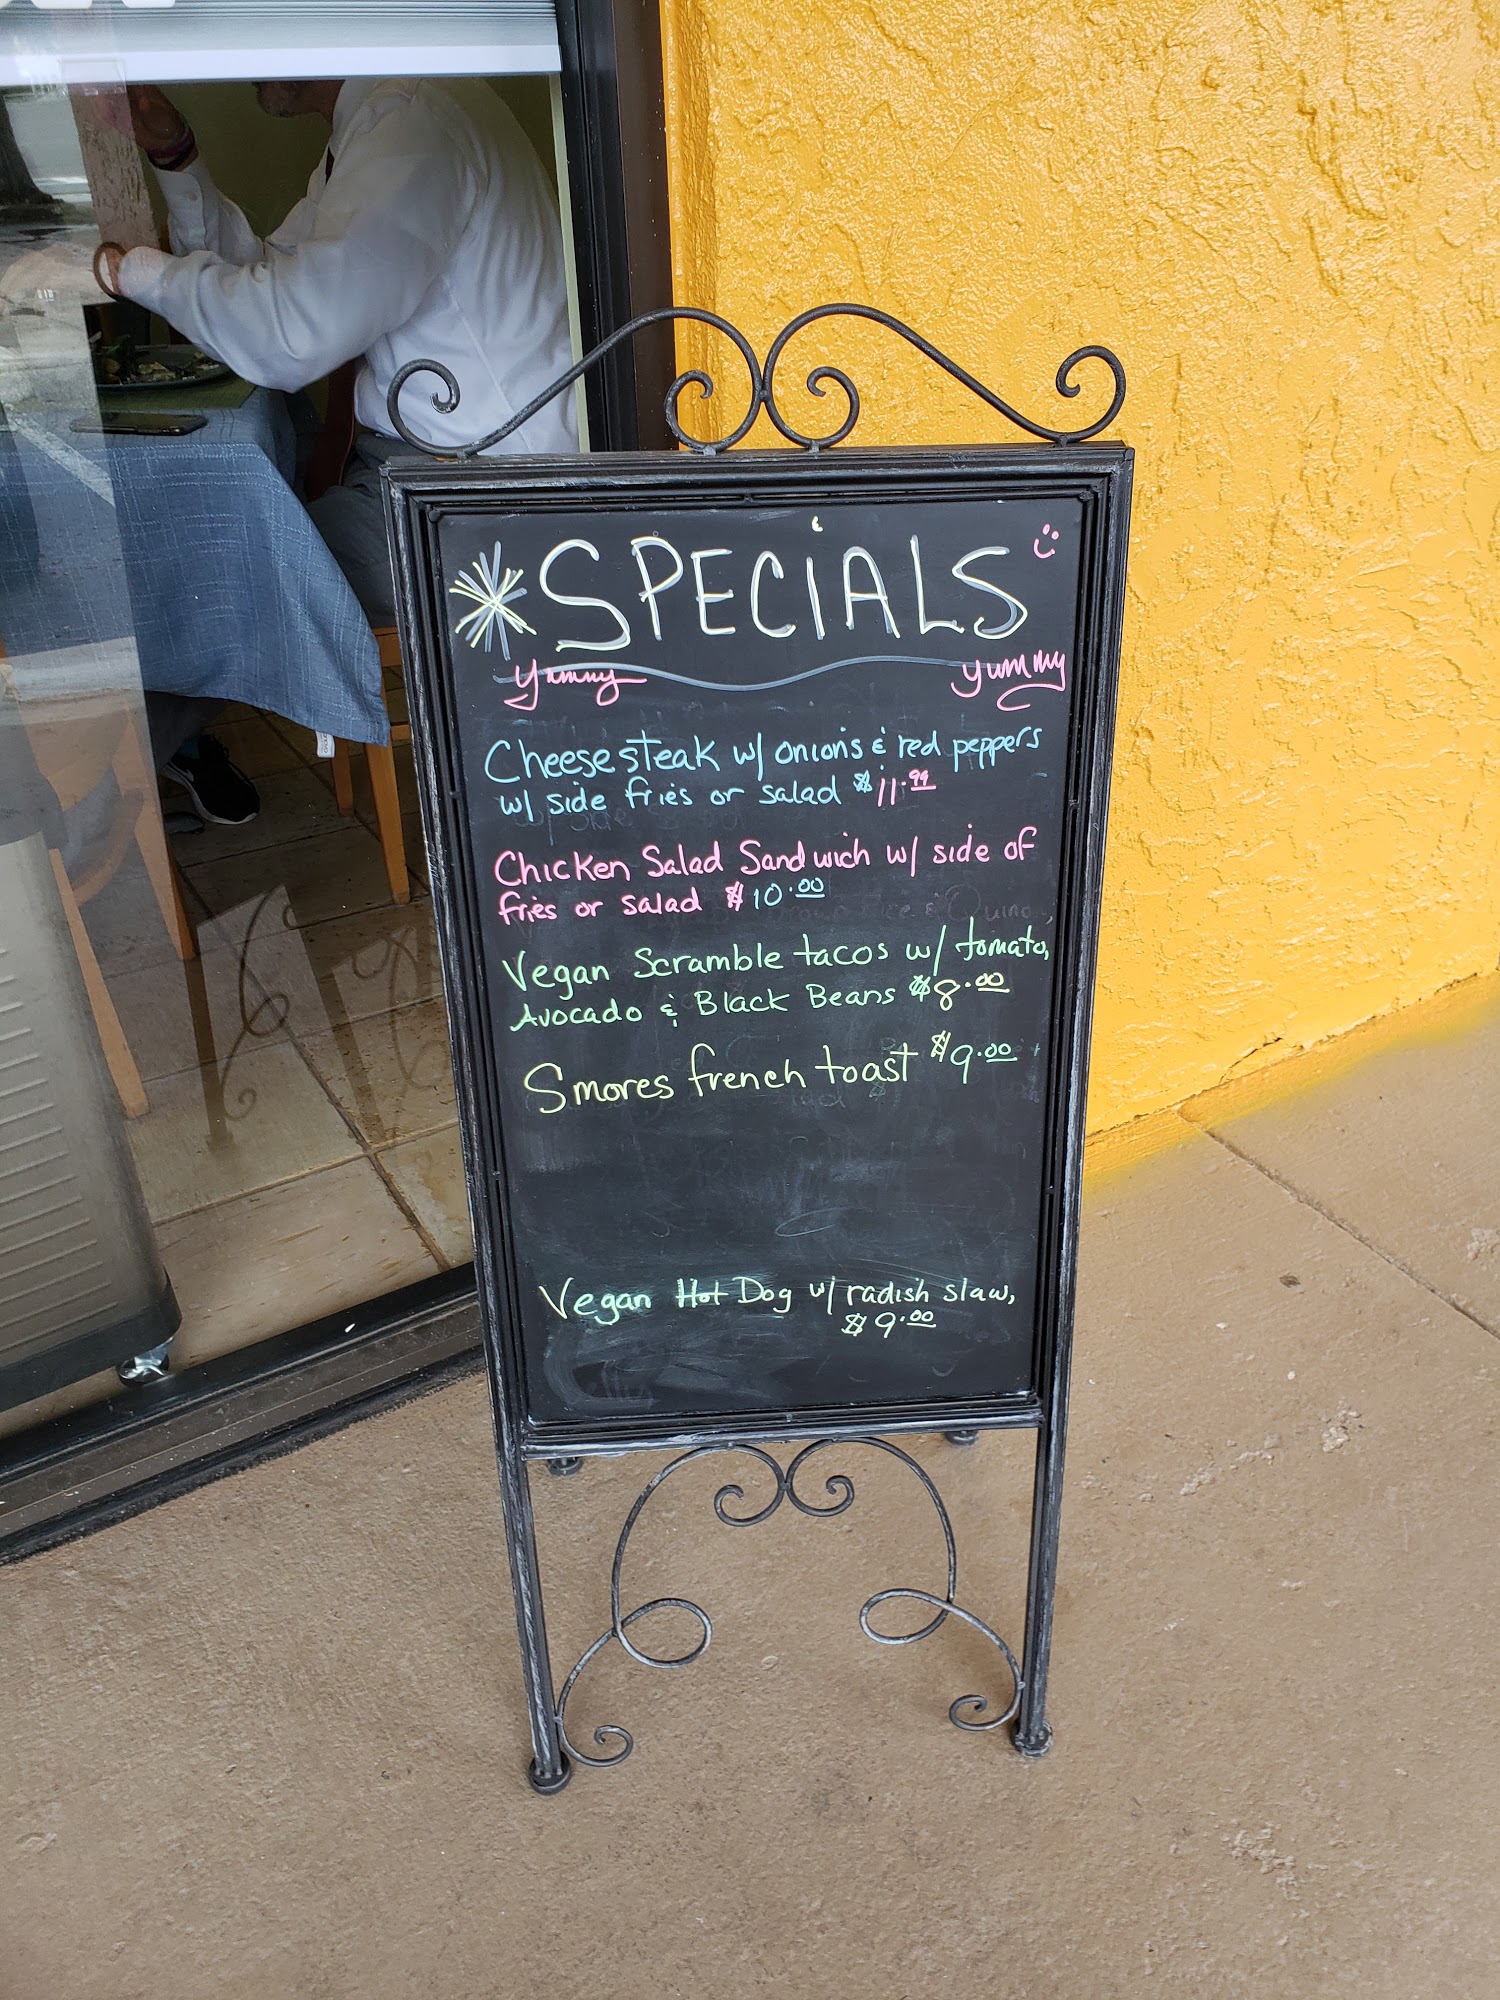 *SPECIALS :)
yummy yummy
Cheesesteak w/ onions & red peppers
w/ side fries or salad $11.99
Chicken Salad Sandwich w/ side of
fries or salad $10.00
Vegan Scramble tacos w/ tomato,
Avocado & Black Beans $8.00
Smores french toast $9.00
Vegan Hot Dog w/ radish slaw,
$9.00